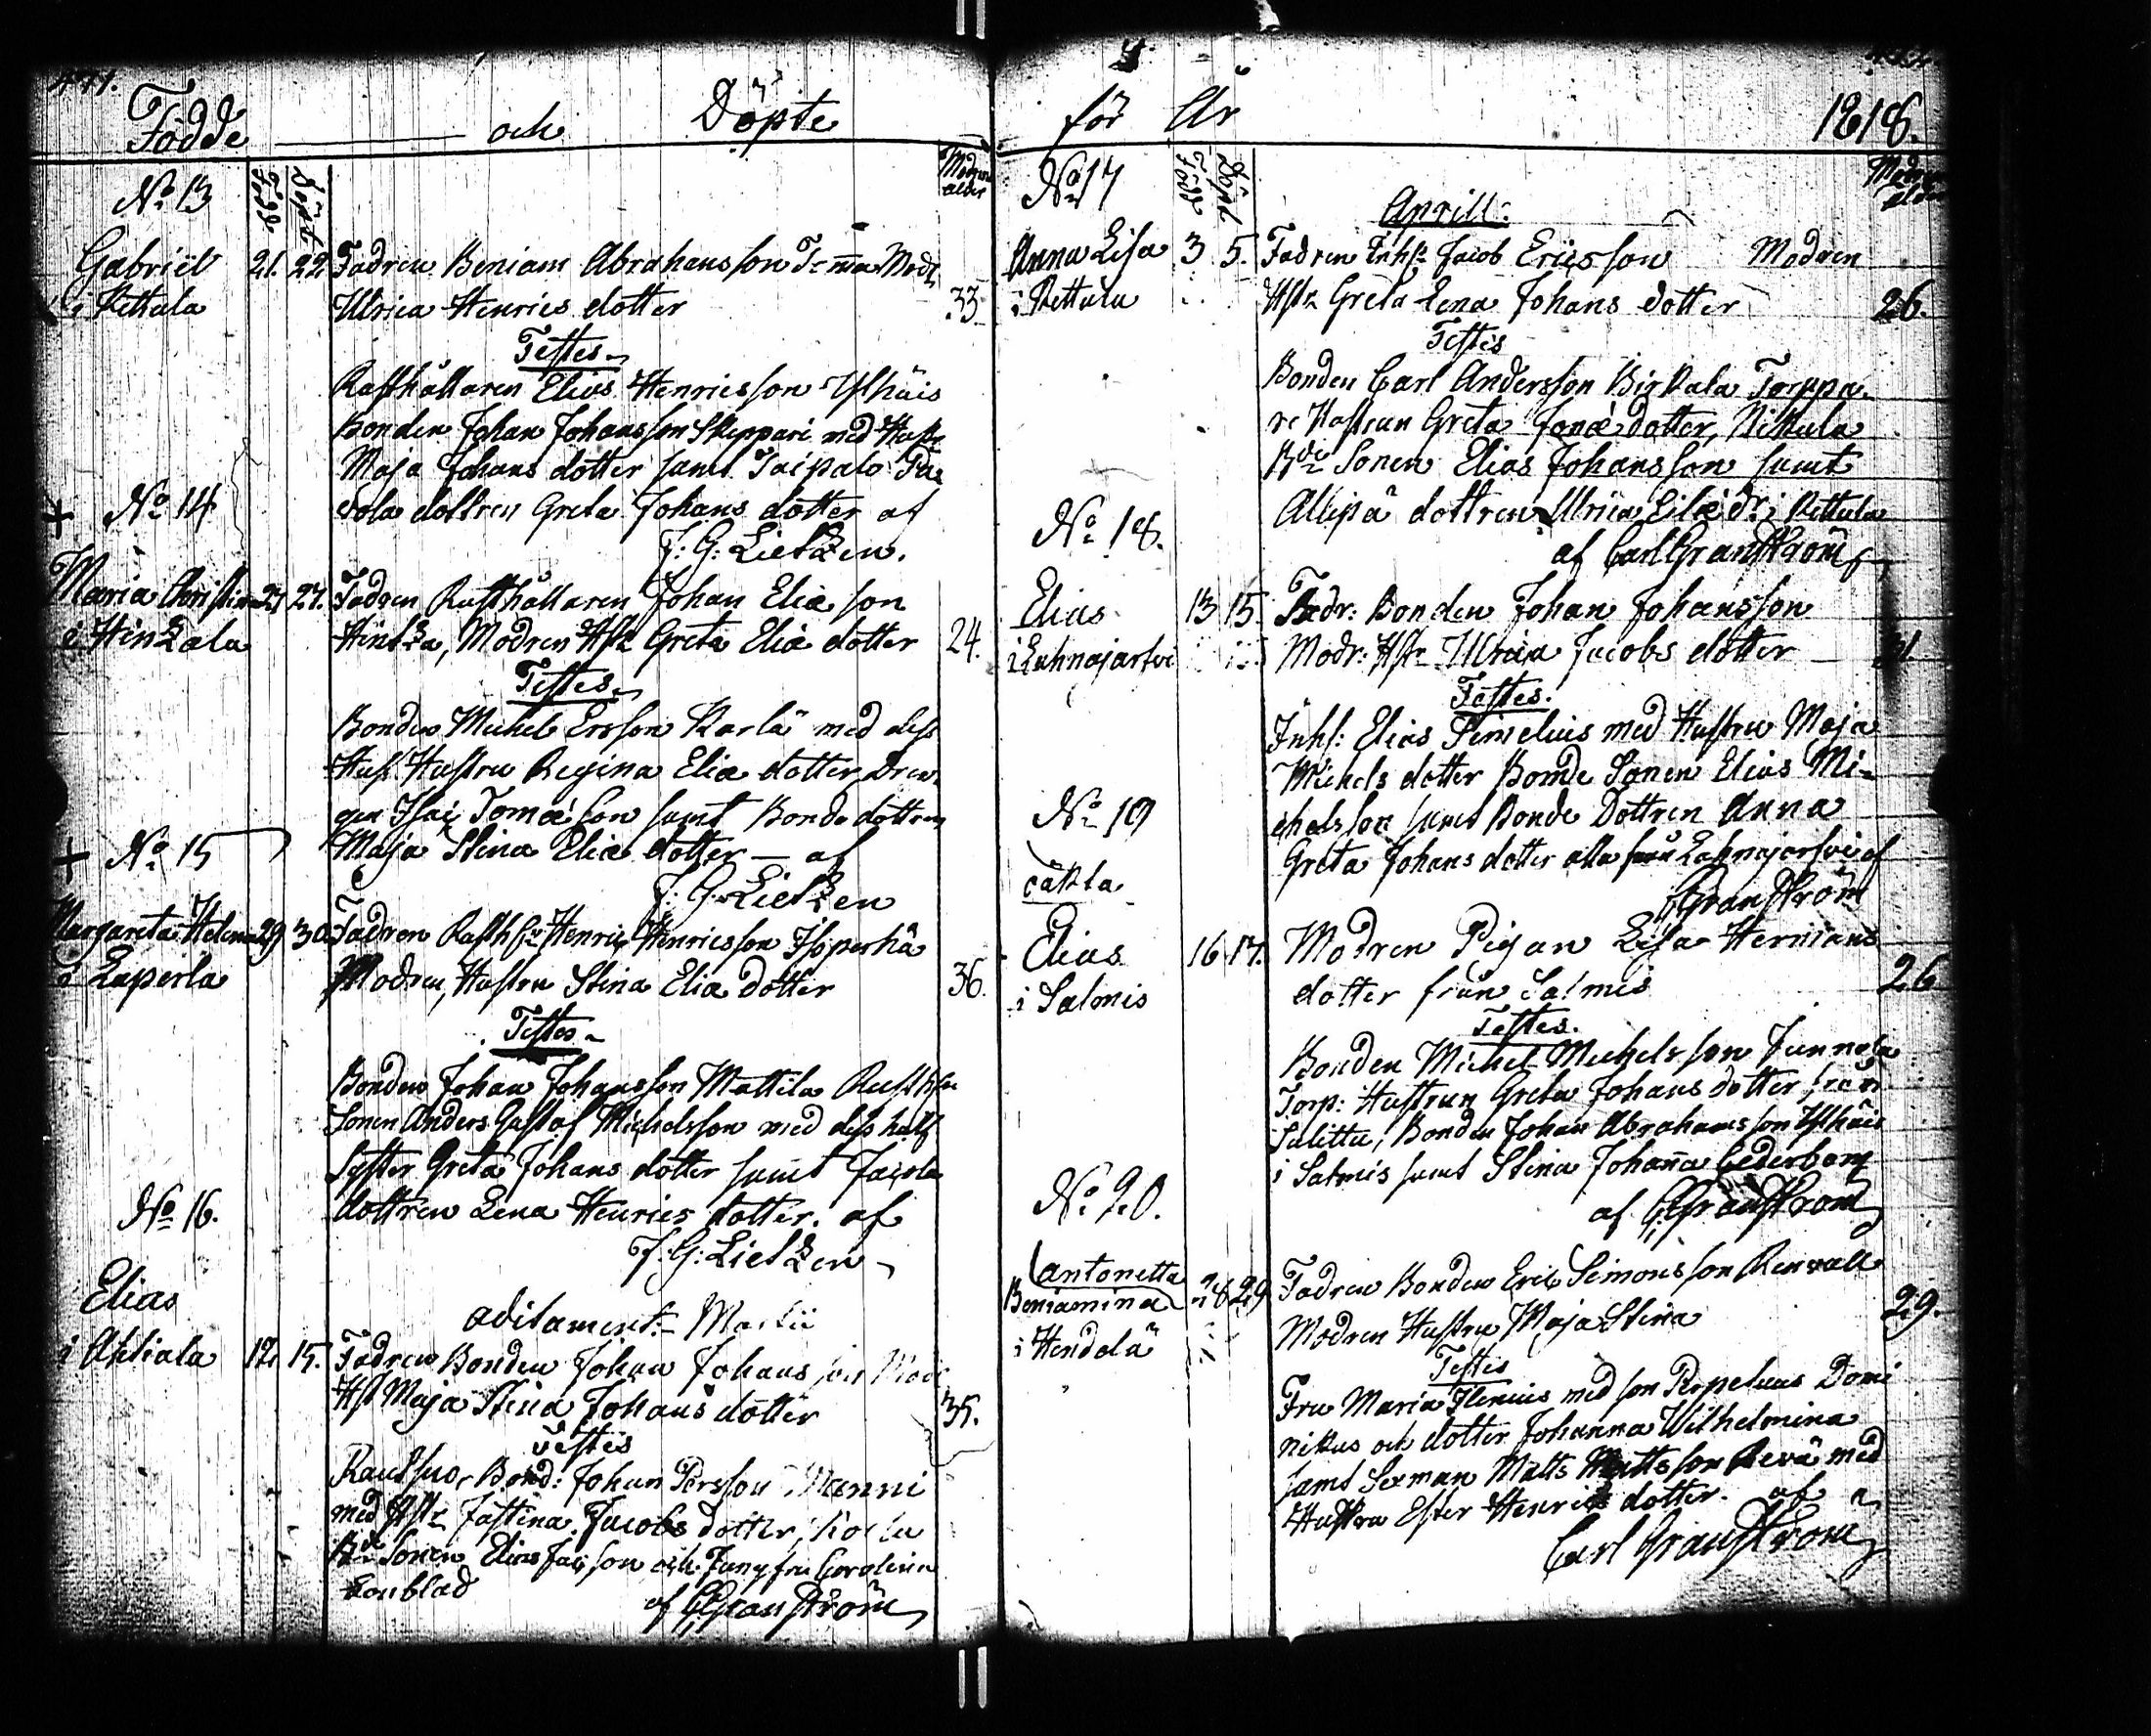 441.
Födde och Döpte
Född Döpt Modrens alder
No 13
Gabriel 21. 22 Fadren Beniam Abrahamsson Modr
i Kettula Ulrica Henrics dotter 33
Testes
Rusthållaren Elias Henricsson Ylhäis
Bonden Johan Johansson Skippari med Hustr
Maja Johans dotter samt
No 14
dottren Greta Johans dotter af
F: G: Lietzen.
Maria Christina 27 27. Fadren Rusthållaren Johan Eliæ son
i Hinzala Hintza, Modren Hstr Greta Eliæ dotter 24.
Testes
Bonden Michel Ersson Karlä med dess
Hustru Regina Eliæ dotter, Dren-
gen Isac Tomæ son samt Bonde dottren
No 15
Maja Stina Eliæ dotter — af
F: G: Lietzen
Margareta Helena 29 30. Fadren Rusth Henric Henricsson Isoperhä
i Laperla Modren, Hustru Stina Eliæ dotter 36.
Testes
Bonden Johan Johansson Mattila Rusth
Sonen Anders Gustaf Michelsson med dess half
Syster Greta Johans dotter samt
No 16.
dottren Lena Henrics dotter. af
F: G: Lietzen
Elias
aditament: Martii
i Ahtiala 12. 15. Fadren Bonden Johan Johansson Modr
Hst Maja Stina Johans dotter 35.
Testes
Bond: Johan Persson Manni
med Hstr Justina Jacobs dotter,
Sonen Elias son och Jungfru Carolina
af C Granström
för År 1818.
Född Döpt Modrens alder
No 17
Aprill:
Anna Lisa 3 5. Fadren Inhs: Jacob Ericsson Modren
i Kettula Hstr Greta Lena Johans dotter 26.
Testes
Bonden Carl Andersson Birkala Torppa-
re Hustrun Greta Jonæ dotter, Nikkula
Sonen Elias Johansson samt
Allipä dottren Ulrica Eliæ dr i Kettula
No 18.
af Carl Granström
Elias 13 15 Fadr: Bonden Johan Johansson
i Lahnajärfvi Modr: Hstr Ulrica Jacobs dotter 31.
Testes
Inhs: Elias Simelius med Hustru Maja
Michels dotter Bonde Sonen Elias Mi-
No 19
chelsson samt Bonde Dottren Anna
Greta Johans dotter alla från Lahnajärfvi af
oäkta
Granström
Elias 16 17. Modren Pigan Lisa Hermans
i Salmis dotter från Salmis 26
Testes.
Bonden Michel Michelsson Junnola
Torp: Hustrun Greta Johans dotter från
Salittu, Bonden Johan Abrahamsson Ylhäis
i Salmis samt Stina Johanna Cederberg
No 20.
af C Granström
Antonetta
Beniamina 28 29 Fadren Bonden Eric Simonsson Renvall
i Hendola Modren Hustru Maja Stina 29.
Testes
Fru Maria Ilenius med son Perpetuus Domi
nikus och dotter Johanna Wilhelmina
samt Sexman Matts Mattsson Revä med
Hustru Ester Henrics dotter. af
Carl Granström